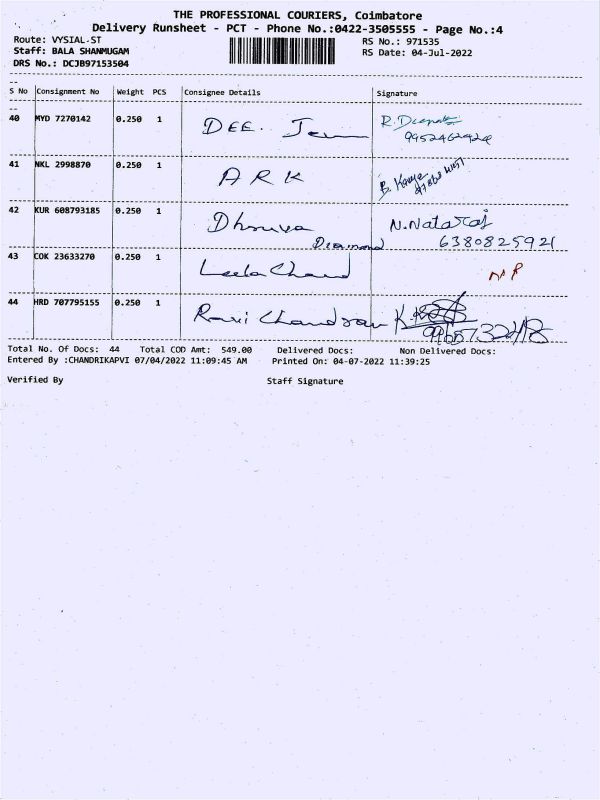 THE PROFESSIONAL COURIERS, Coimbatore
Delivery Runsheet - PCT - Phone No.:0422-3505555 - Page No.:4
Route: VYSIAL.ST RS No.: 971535
Staff: BALA SHANMUGAM RS Date: 04-Jul-2022
DRS No.: DCJB97153504
S No Consignment No Weight PCS Consignee Details Signature
40 MYD 7270142 0.250 1 DEE.
41 NKL 2998870 0.250 1 ARK
42 KUR 608793185 0.250 1 Dhruva Diamond N.Nataraj
6380825921
43 COK 23633270 0.250 1 Leela Chand
44 HRD 707795155 0.250 1 Ravi Chandran K
Total No. Of Docs: 44 Total COD Amt: 549.00 Delivered Docs: Non Delivered Docs:
Entered By :CHANDRIKAPVI 07/04/2022 11:09:45 AM Printed On: 04-07-2022 11:39:25
Verified By Staff Signature